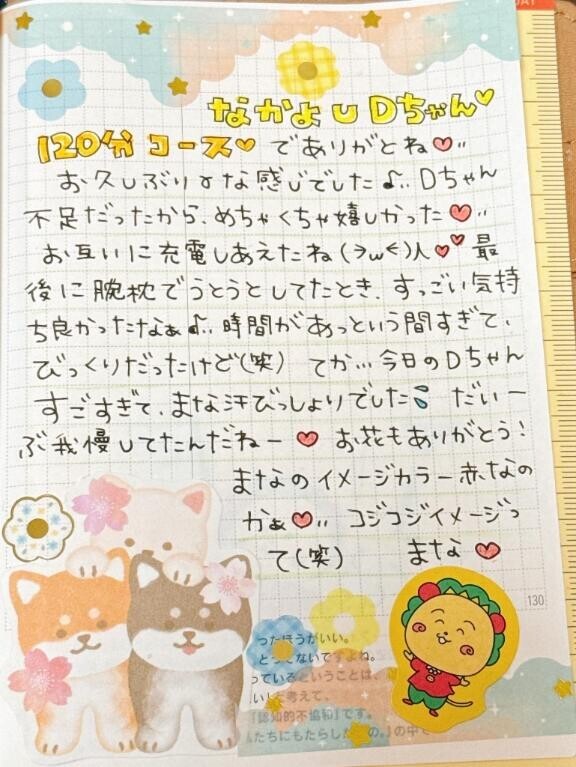 なかよしDちゃん♡
120分コース♡でありがとね♡‥
お久しぶりな感じでした♪‥Dちゃん
不足だったから、めちゃくちゃ嬉しかった♡‥
お互いに充電しあえたね(>ω<)人♡♡ 最
後に腕枕でうとうとしてたとき、すっごい気持
ち良かったなぁ♪‥時間があっという間すぎて、
びっくりだったけど(笑) てか…今日のDちゃん
すごすぎて、まな汗びっしょりでした💦 だいー
ぶ我慢してたんだねー♡ お花もありがとう!
まなのイメージカラー赤なの
かぁ♡‥ コジコジイメージっ
て(笑) まな♡
130
ったほうがいい。
ないですよね。
っているということは、
考えて、
「認知的不協和」です。
たちにもたらした
の。」の中で
DAY